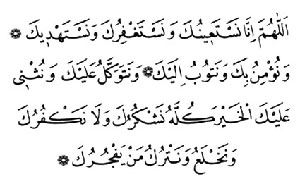 اَللّٰهُمَّ اِنَّا نَسْتَعِينُكَ وَنَسْتَغْفِرُكَ وَنَسْتَهْدِيكَ ❁
وَنُؤْمِنُ بِكَ وَنَتُوبُ اِلَيْكَ ❁ وَنَتَوَكَّلُ عَلَيْكَ وَنُثْنِى
عَلَيْكَ الْخَيْرَ كُلَّهُ نَشْكُرُكَ وَلَا نَكْفُرُكَ
وَنَخْلَعُ وَنَتْرُكُ مَنْ يَفْجُرُكَ ❁